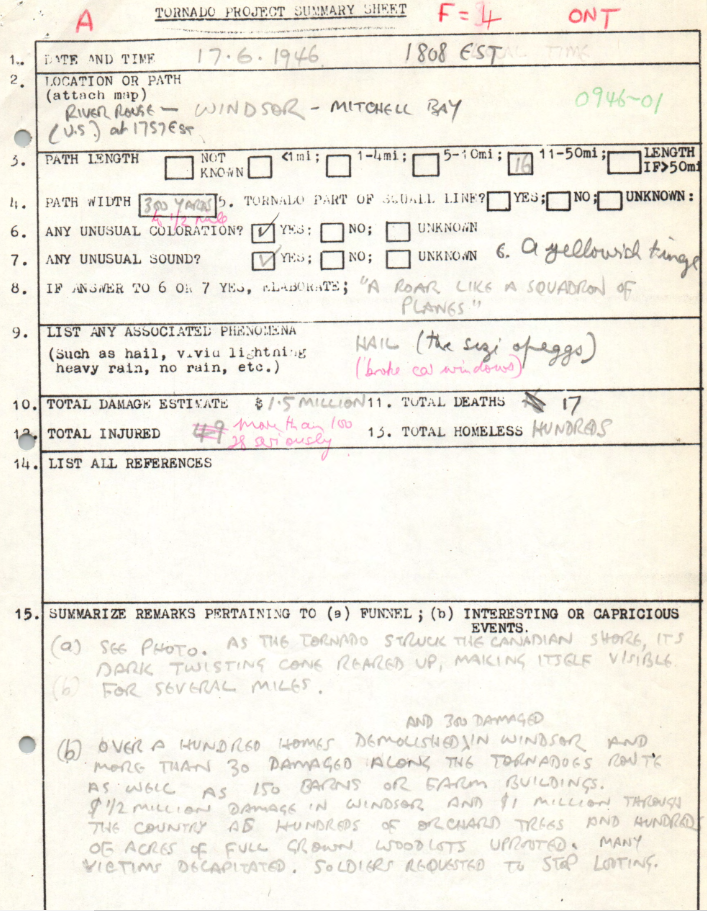 TORNADO PROJECT SUMMARY SHEET
A F=4 ONT
1. DATE AND TIME 17.6.1946 1808 EST
2. LOCATION OR PATH
(attach map)
RIVER ROUGE - WINDSOR - MITCHELL BAY 0946-01
(U.S) at 1757 EST
3. PATH LENGTH NOT KNOWN <1mi; 1-4mi; 5-10mi; 16 11-50mi; LENGTH IF>50mi
4. PATH WIDTH 300 YARDS 5. TORNADO PART OF SQUALL LINE? YES; NO; UNKNOWN:
1/2 mile
6. ANY UNUSUAL COLORATION? ✓ YES; NO; UNKNOWN
7. ANY UNUSUAL SOUND? ✓ YES; NO; UNKNOWN 6. A yellowish tinge
8. IF ANSWER TO 6 OR 7 YES, ELABORATE; "A ROAR LIKE A SQUADRON OF
PLANES"
9. LIST ANY ASSOCIATED PHENOMENA
(Such as hail, vivid lightning HAIL (the size of eggs)
heavy rain, no rain, etc.) (broke car windows)
10. TOTAL DAMAGE ESTIMATE $1.5 MILLION 11. TOTAL DEATHS 17
12. TOTAL INJURED 49 more than 100 13. TOTAL HOMELESS HUNDREDS
28 seriously
14. LIST ALL REFERENCES
15. SUMMARIZE REMARKS PERTAINING TO (a) FUNNEL; (b) INTERESTING OR CAPRICIOUS
EVENTS.
(a) SEE PHOTO. AS THE TORNADO STRUCK THE CANADIAN SHORE, ITS
DARK TWISTING CONE REARED UP, MAKING ITSELF VISIBLE
(b) FOR SEVERAL MILES.
AND 300 DAMAGED
(b) OVER A HUNDRED HOMES DEMOLISHED IN WINDSOR AND
MORE THAN 30 DAMAGED ALONG THE TORNADOES ROUTE
AS WELL AS 150 BARNS OR FARM BUILDINGS.
$1/2 MILLION DAMAGE IN WINDSOR AND $1 MILLION THROUGH
THE COUNTRY AS HUNDREDS OF ORCHARD TREES AND HUNDREDS
OF ACRES OF FULL GROWN WOODLOTS UPROOTED. MANY
VICTIMS DECAPITATED. SOLDIERS REQUESTED TO STOP LOOTING.